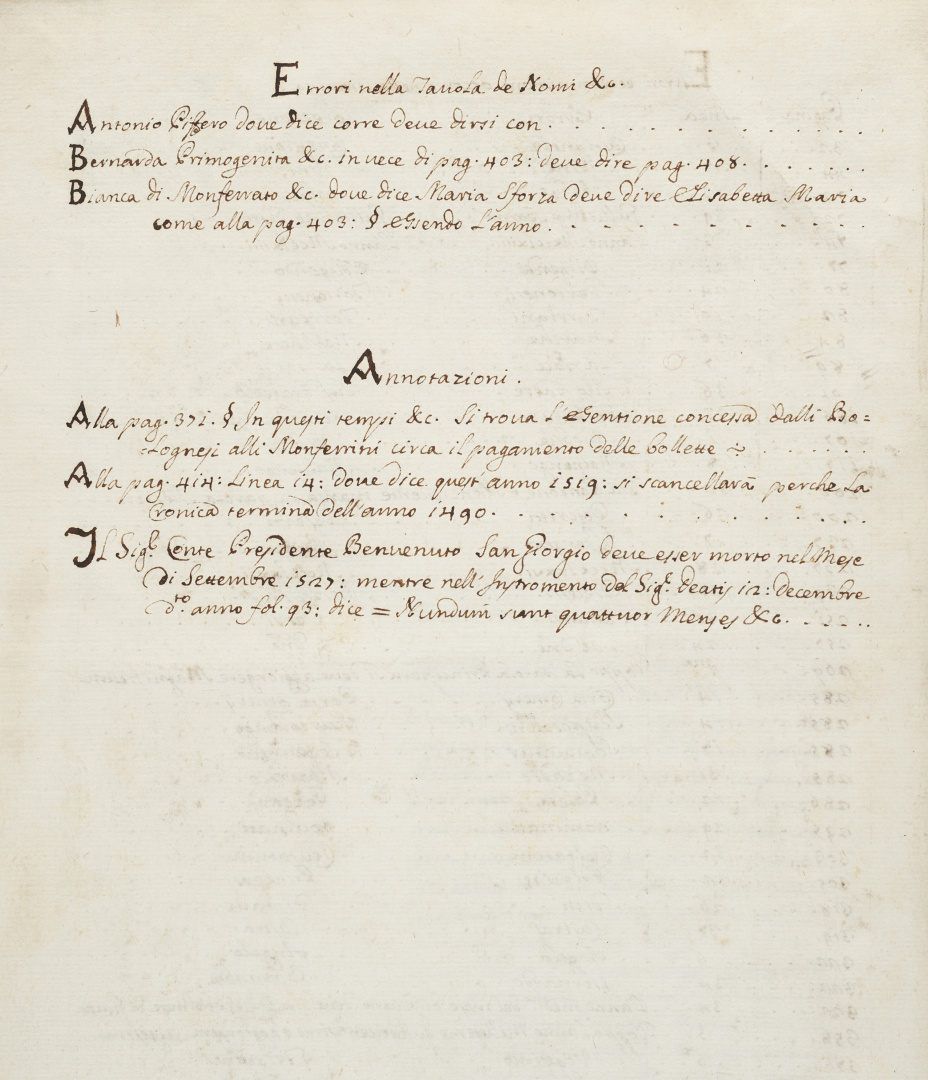 Errori nella Tavola de Nomi &c.
Antonio Piffero dove dice corre deve dirsi con . . . . . . . . . . . . .
Bernarda Primogenita &c. in vece di pag. 403: deve dire pag. 408. . . . . . .
Bianca di Monferrato &c. dove dice Maria Sforza deve dire Elisabetta Maria
come alla pag. 403: § Essendo l'anno. . . . . . . . . . . . . .
Annotazioni.
Alla pag. 371. § In questi tempi &c. Si trova l'Esentione concessa dalli Bo=
=lognesi alli Monferrini circa il pagamento delle bollette . . . . . . .
Alla pag. 414: Linea 14: dove dice quest'anno 1519: si scancellarà perche la
Cronica termina dell'anno 1490. . . . . . . . . . . . .
Il Sig.r Conte Presidente Benvenuto San Giorgio deve esser morto nel Mese
di Settembre 1527: mentre nell'Instromento del Sig.r Deatis 12: Decembre
d.to anno fol. 93: dice = Nundum sunt quattuor Menses &c. . . . . .